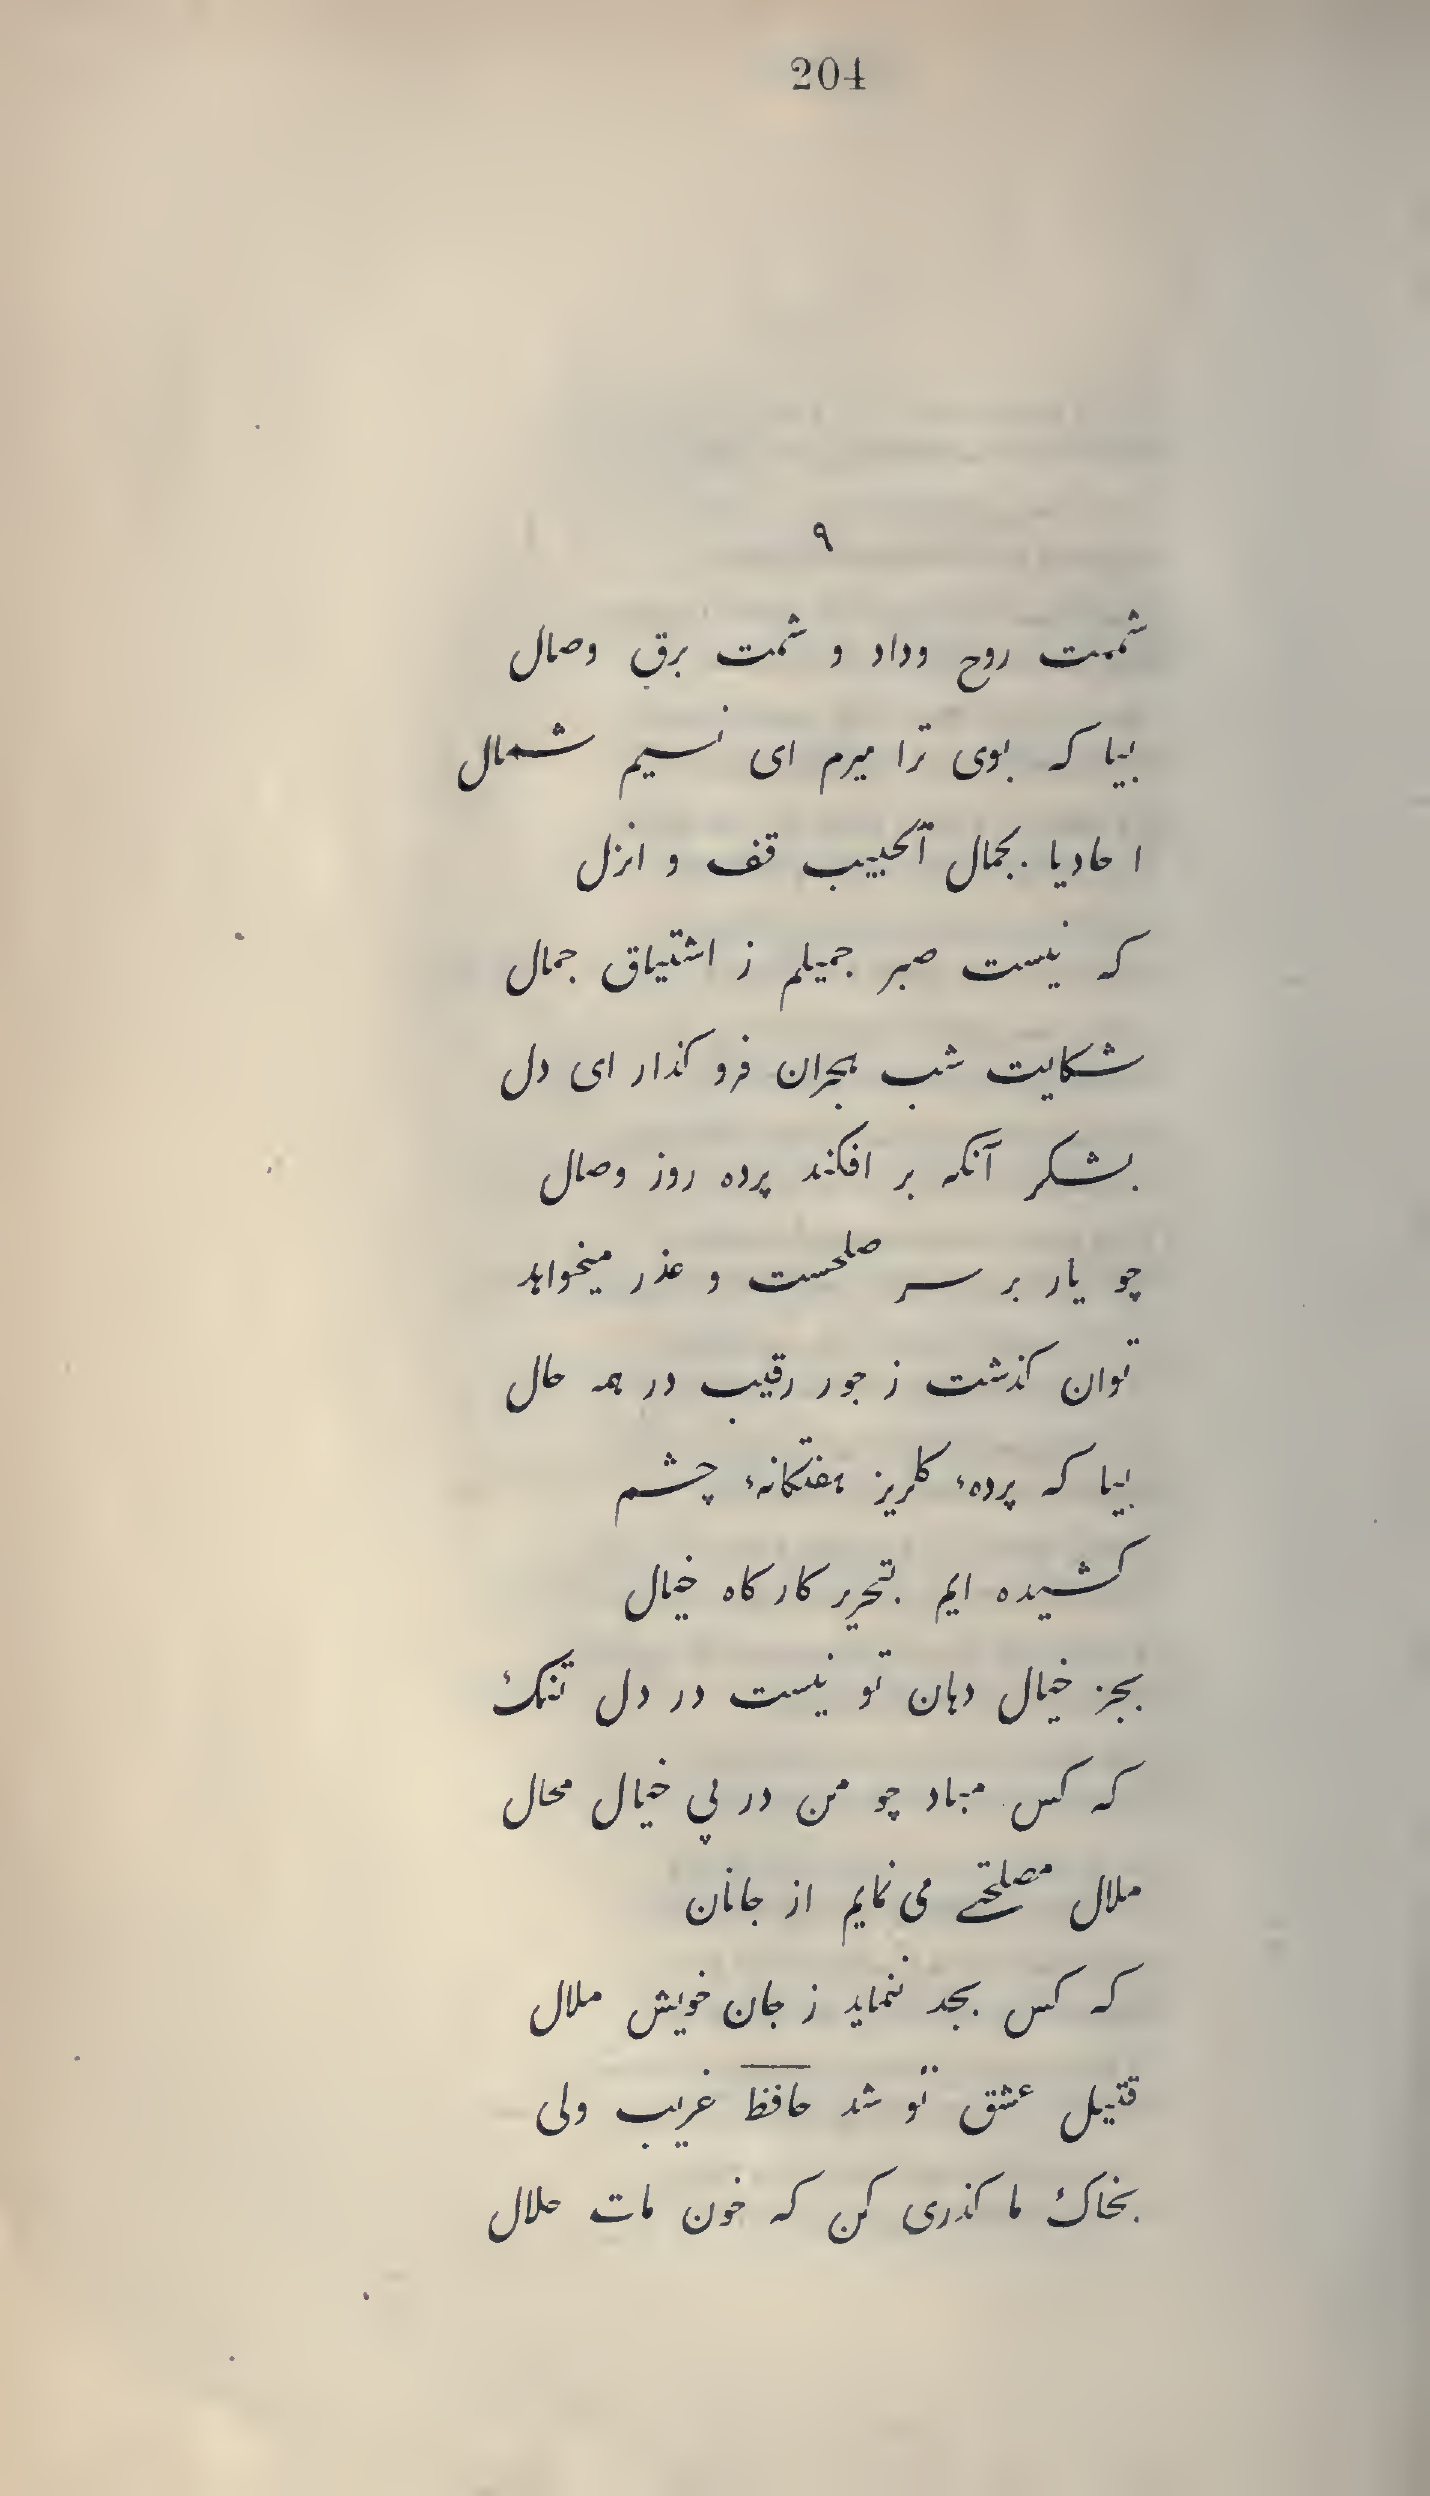 204
۹
شممت روح وداد و شمت برق وصال
بیا که بوی ترا میرم ای نسیم شمال
احادیا بجمال آلحبیب قف و انزل
که نیست صبر جمیلم ز اشتیاق جمال
شکایت شب هجران فرو کذار ای دل
بشکر آنکه بر افکند پرده روز وصال
چو یار بر سر صلحست و عذر میخواهد
توان کذشت ز جور رقیب در همه حال
بیا که پردهء کلریز هفتکانهء چشم
کشیده ایم بتحریر کارکاه خیال
بجز خیال دهان تو نیست در دل تنک
که کس مباد چو من در پی خیال محال
ملال مصلحتے می نمایم از جانان
که کس بجد ننماید ز جان خویش ملال
قتیل عشق تو شد حافظ غریب ولی
بخاک ما کذری کن که خون مات حلال